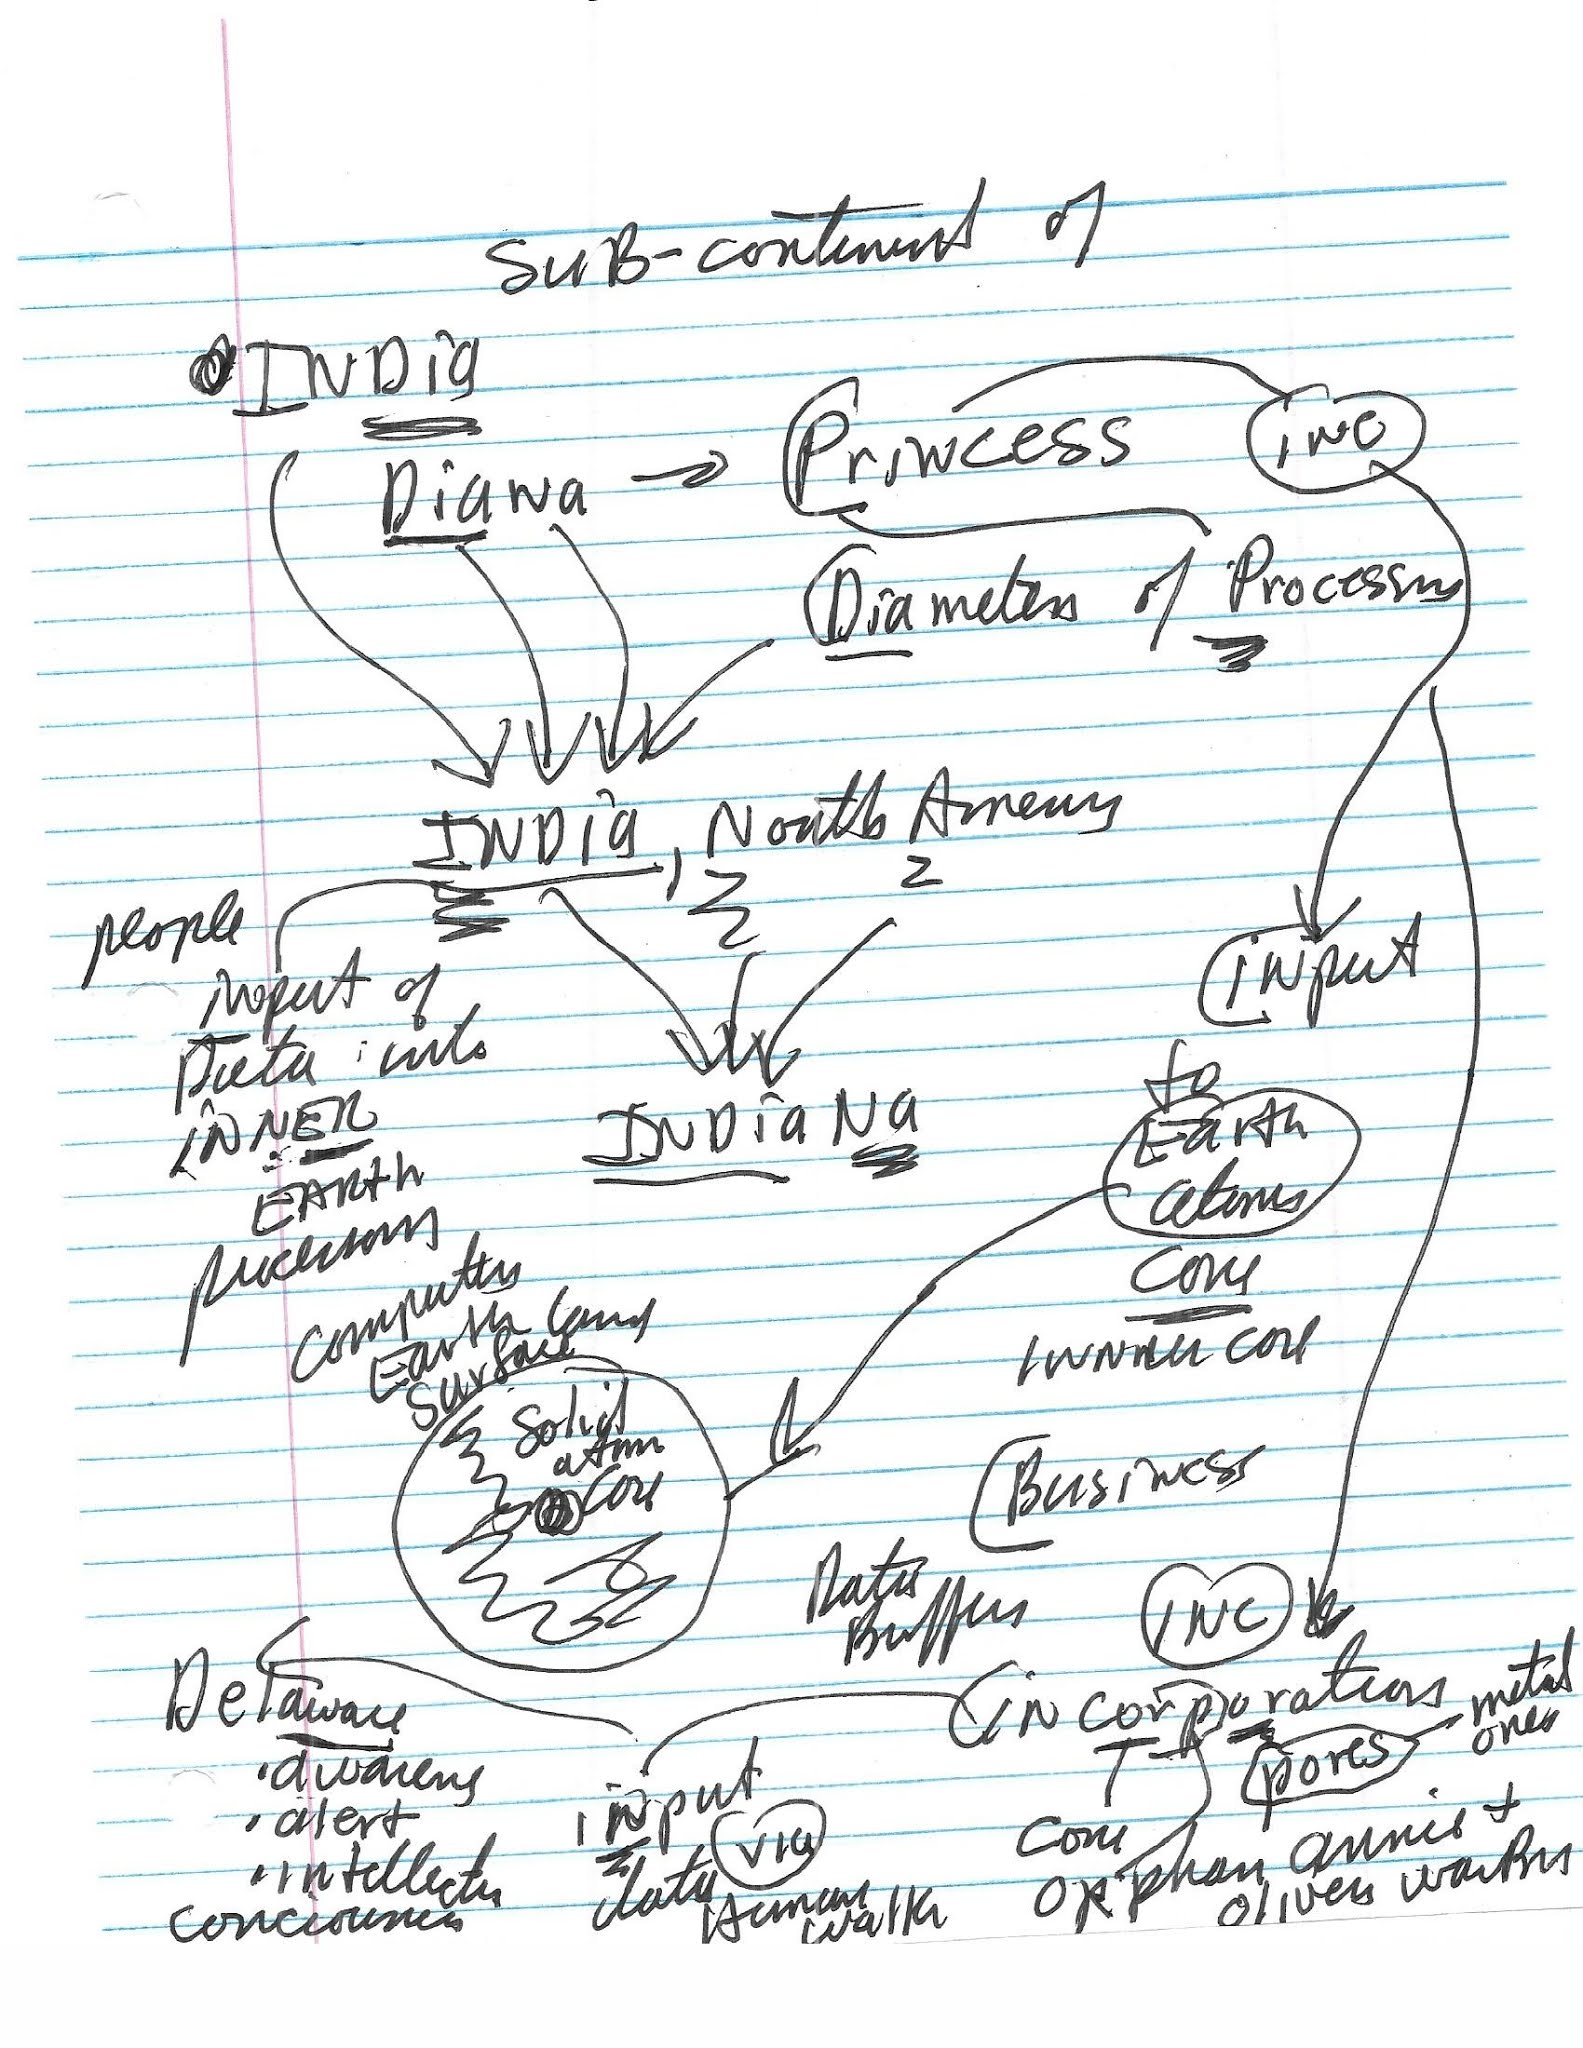 SUB-continent of
INDia
Diana → Princess inc
Diameters of Processing
INDia, North America
people
input of
Data into
iNNER
EARth
processors
computers
Earth land
surface
INDiaNa
input
to
Earth
atoms
Core
inner core
Solid
atom
Core
Business
Data
Buffers
iNC
Delaware
incorporations
metal
ones
pores
• awareness
• alert
• intellects
conciousness
input
data via
Human
walk
Core
orphan annie +
oliver